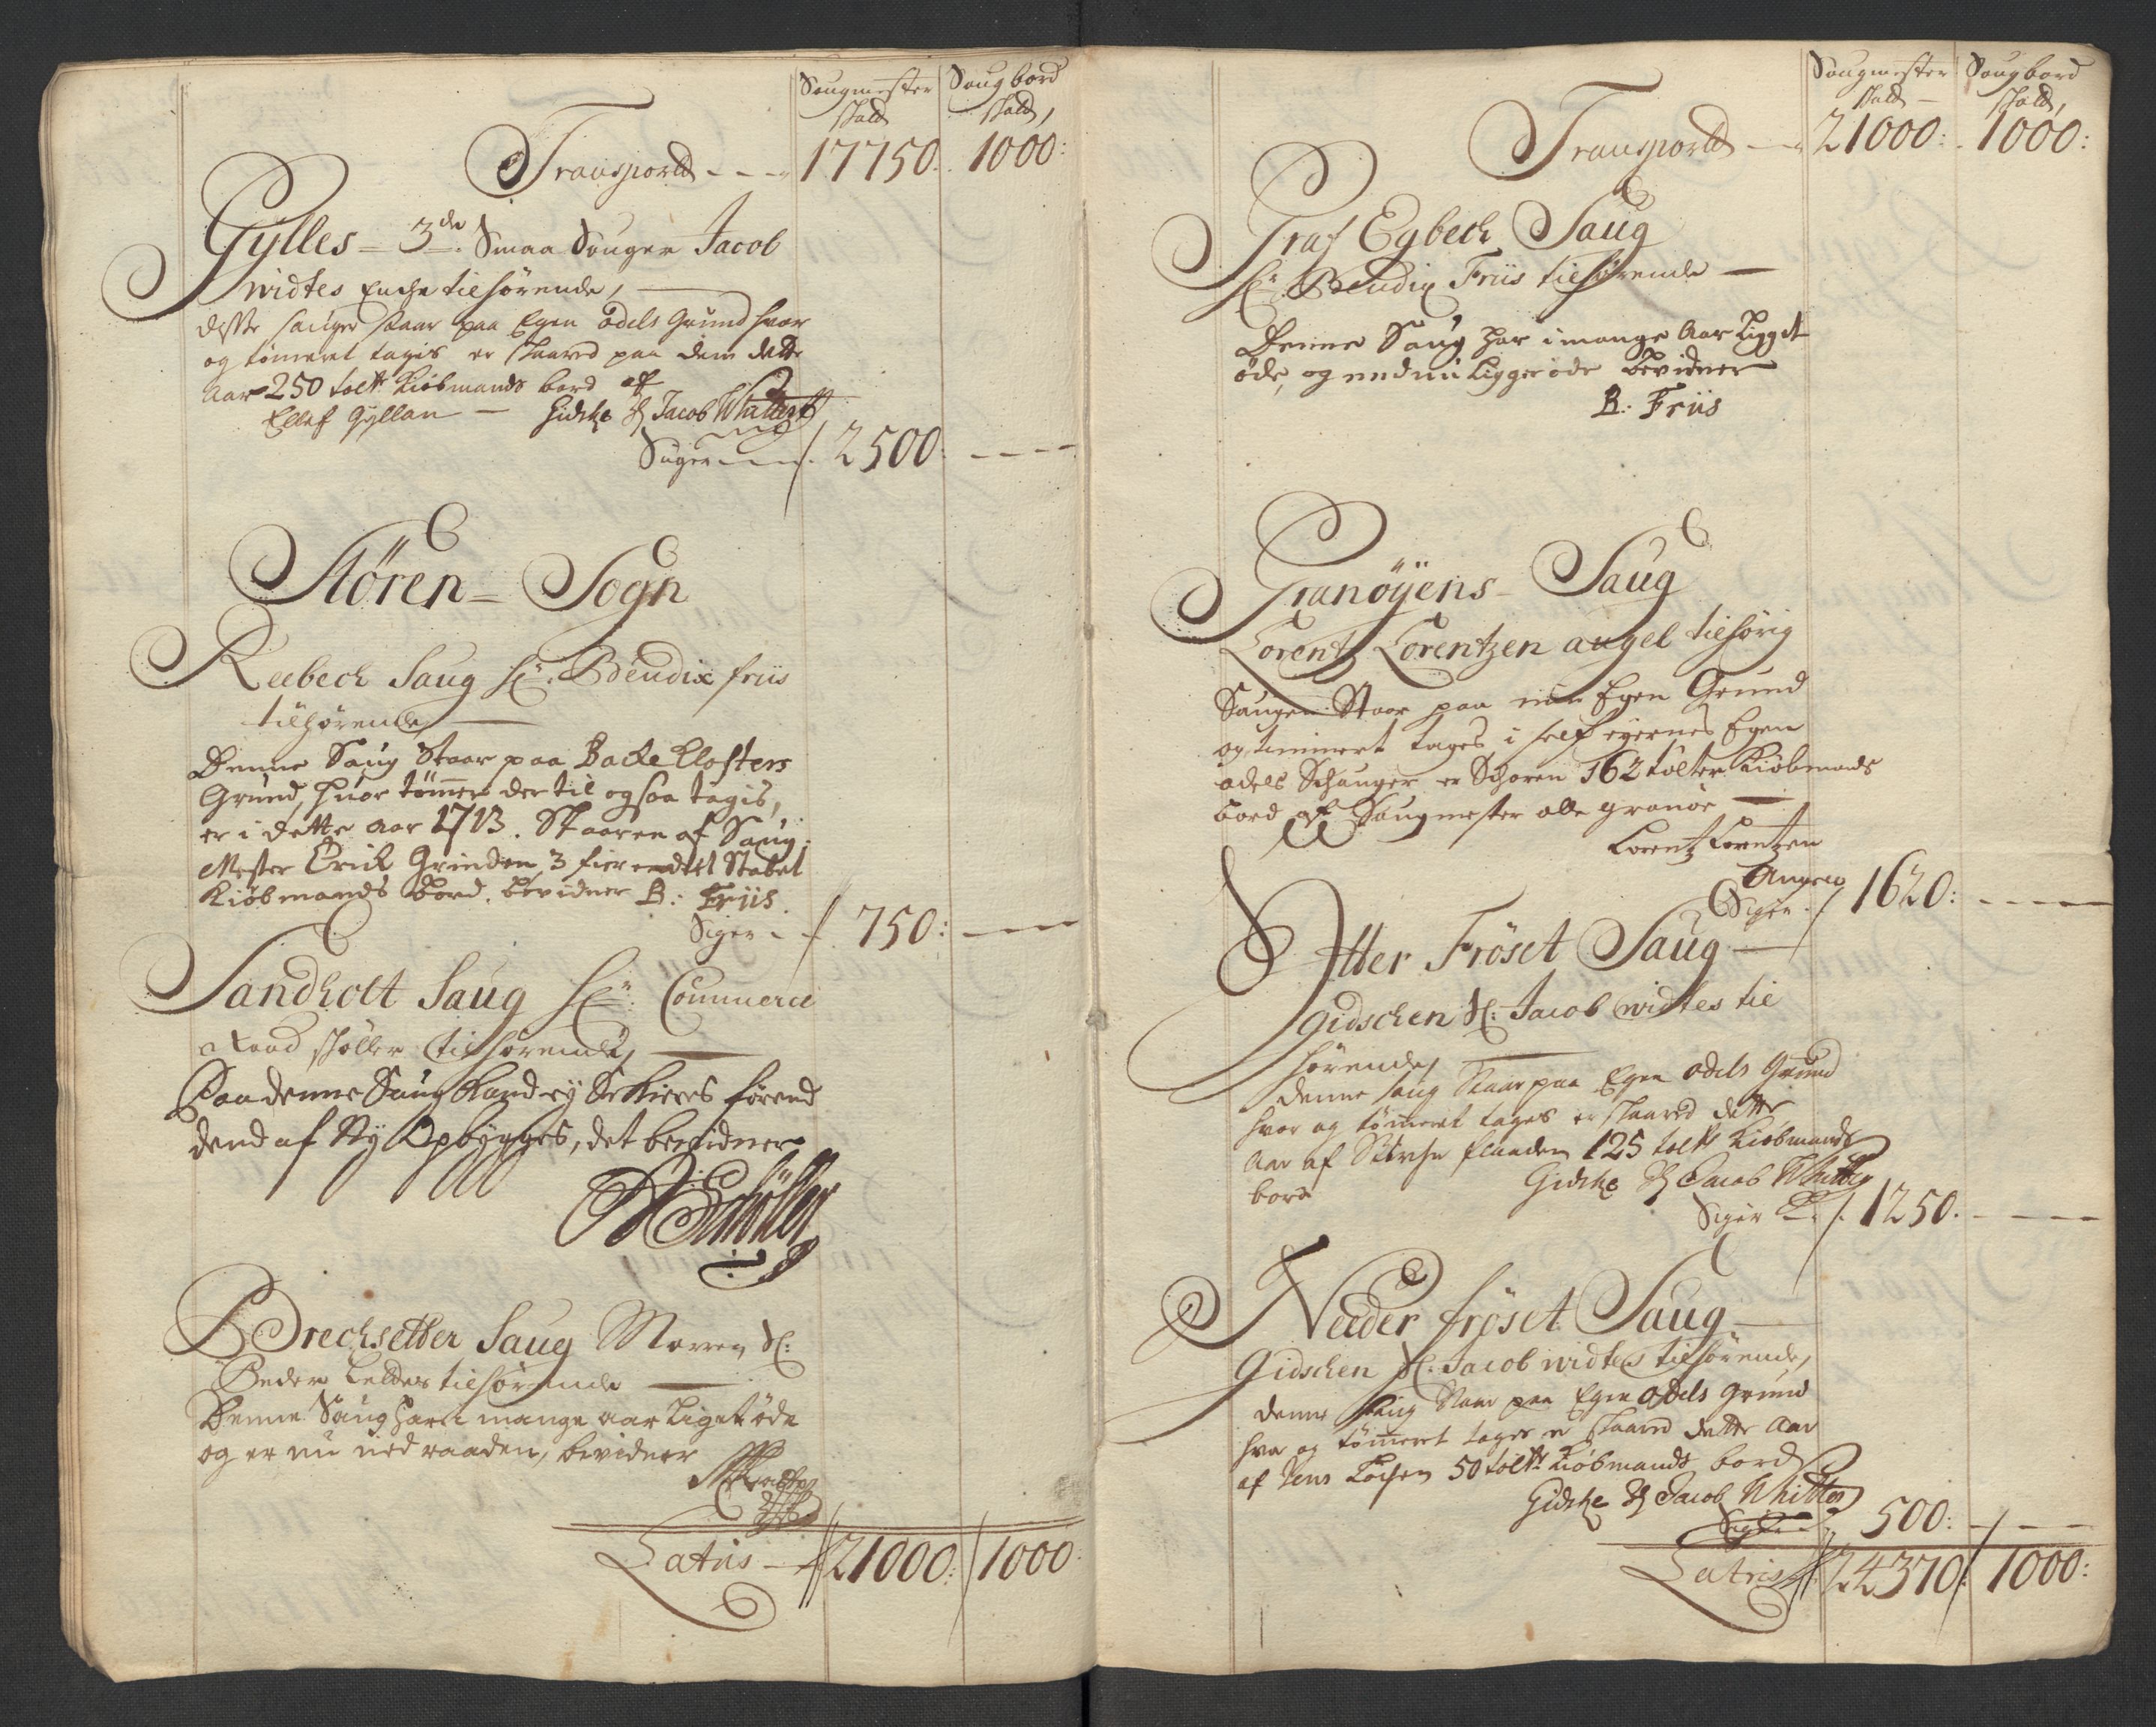 Saugmester Saugbord
skatt skatt,
Transportt - - - 17750. 1000:
Gylles = 3de. Smaa Sauger Jacob
widtes Enche tilhørende,
disse sauger staar paa Egen odels Grund hvor
og tømeret tagis er skaared paa dem dette
Aar 250 tolt. Kiøbmands bord aff
Ellef Gyllan — Gidske Sl Jacob Whitters
Siger - - - 2500: - - - -
Støren = Sogn
Reebech Saug Hr. Bendix friis
tilhørende
Denne Saug Staar paa Backe Closters
Grund, huor tømer der til ogsaa tagis,
er i dette Aar 1713. Skaaren af Saug-
Mester Erick Grinden 3 fierendeel Stabel
Kiøbmands Bord. bevidner B: Friis.
Siger - 750: - - -
Sandholt Saug Hr. Commerce
Raad skøller tilhørende,
Paa denne Saug Kand ej Skieres førend
dend af Ny Opbygges, det bevidner
Schøller
Brechsetter Saug Maren Sl:
Peder tilhørende
Denne Saug har i mange aar Liget øde
og er nu ned raaden, bevidner
Latus - 21000: 1000:
Saugmester Saugbord
skatt skatt,
Transportt — 21000: 1000:
Graf Egbech Saug
Hr. Bendix Friis tilhørende —
Denne Saug har i mange Aar Ligget
øde, og end nu Ligger øde Bevidner
B: Friis
Granøyens - Saug
Lorentz Lorentzen angel tilhørig
Saugen Staar paa min Egen Grund
og timmert tages i self eyernes Egen
odels Schauger er Schoren 162 tolter Kiøbmands
bord af Saugmester olle granøe
Lorentz Lorentzen
Angell
Siger - 1620: - - - -
Øtter Frøset Saug —
Gidschen Sl: Jacob widtes til
hørende,
denne saug Staar paa Egen odels Grund
hvor og tømeret tages er skaared dette
Aar af 125 tolt Kiøbmands
bord Gidske Sl Jacob Whitters
Siger 1250: - - - -
Neder frøset Saug —
Gidschen Sl: Jacob widtes tilhørende,
denne saug Staar paa Egen odels Grund
hvor og tømeret tages er skaared dette Aar
af Jens 50 tolt. Kiøbmands bord
Gidske Sl Jacob Whitters
Siger 500: - - -
Latus 24370: 1000: